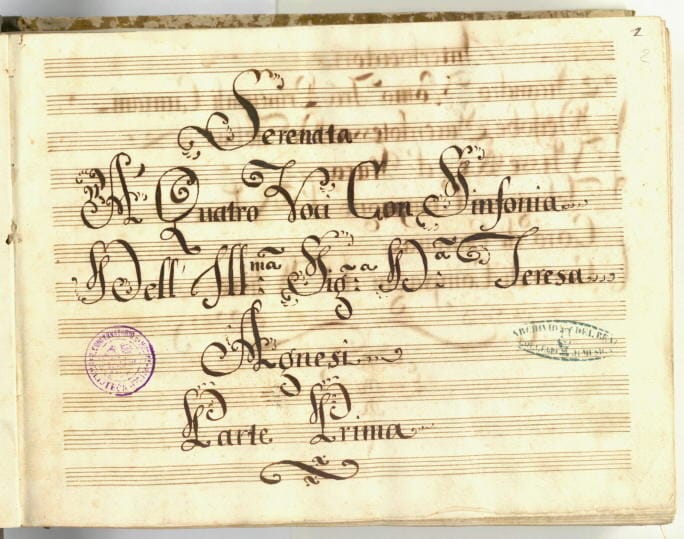 2
2
Serenata
A' Quatro Voci Con Sinfonia
Dell' Ill:ma Sig:a D:a Teresa
Agnesi
Parte Prima
ARCHIVIO DEL REAL
COLLEGIO DI MUSICA